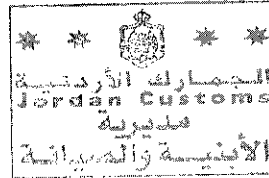 الجمارك الأردنية
Jordan Customs
مديرية
الأبنية والصيانة